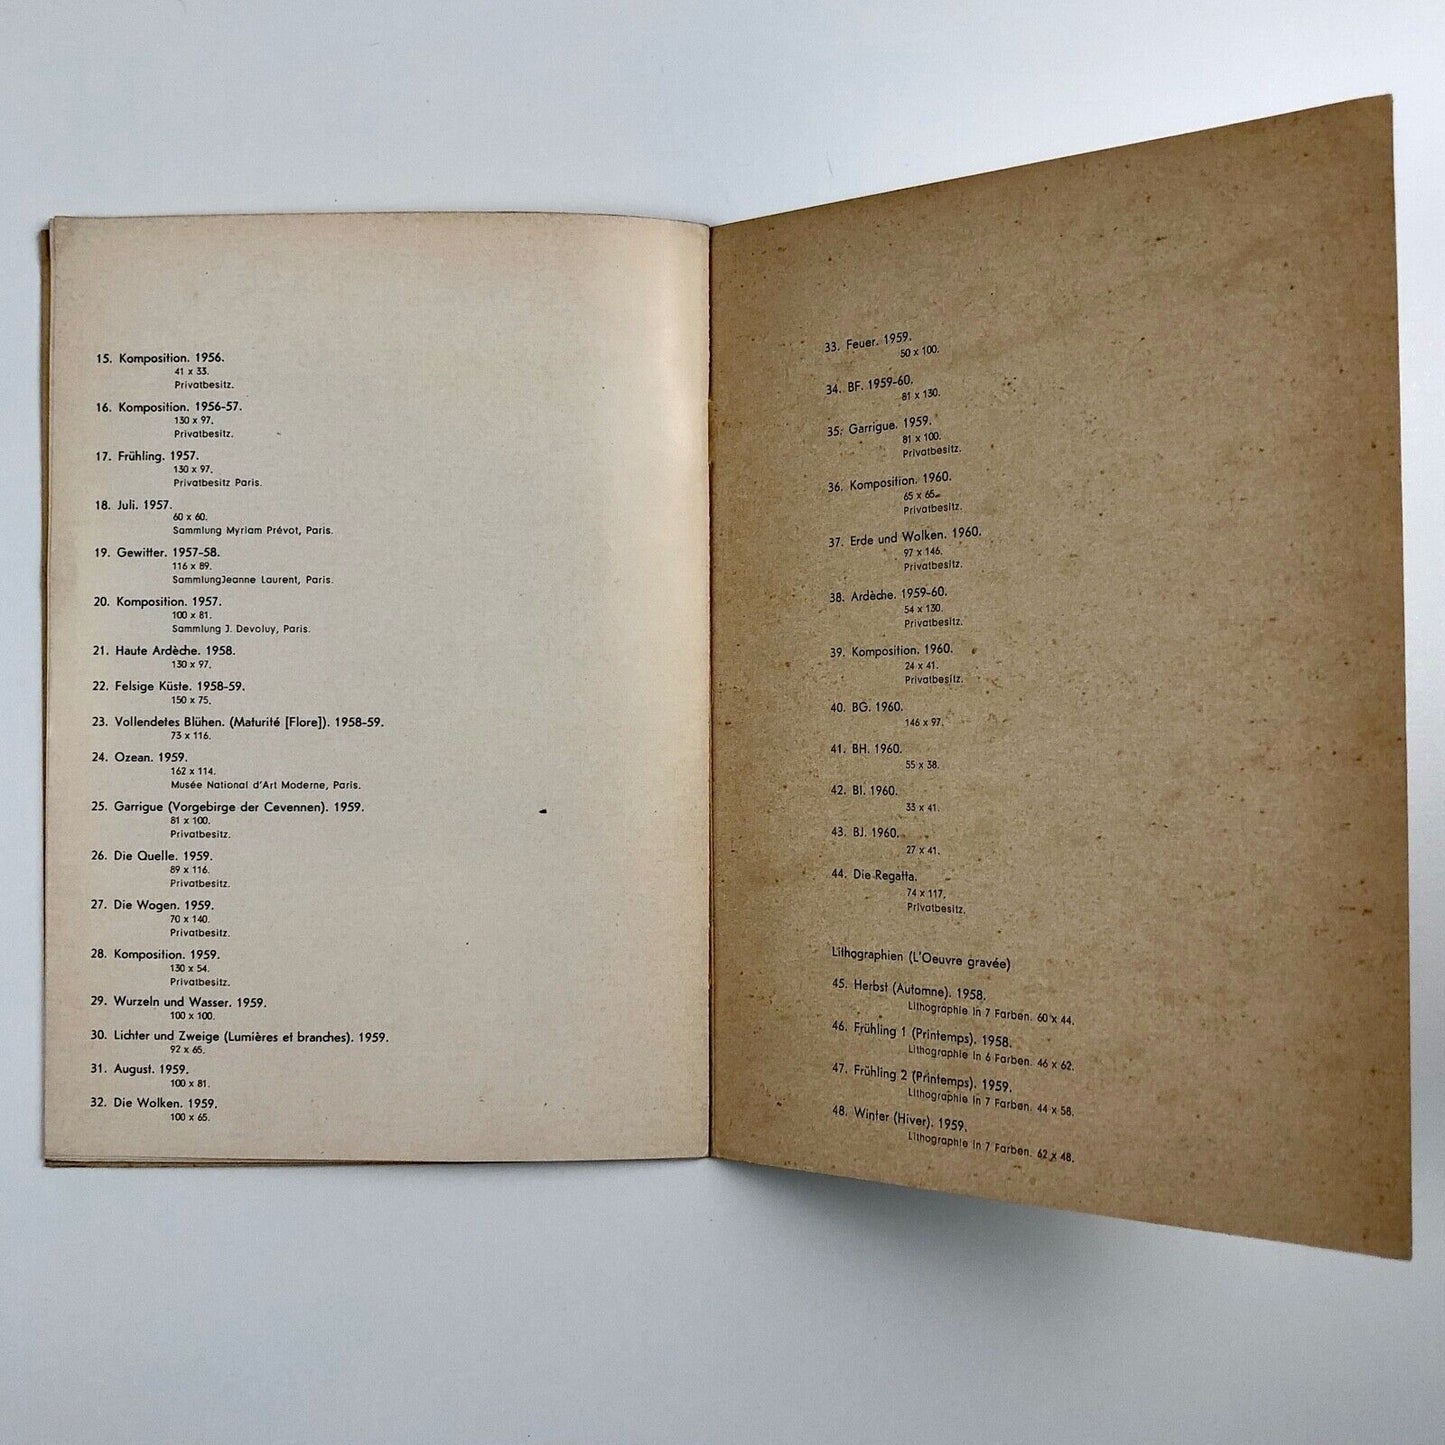 15. Komposition. 1956.
41 x 33.
Privatbesitz.
16. Komposition. 1956-57.
130 x 97.
Privatbesitz.
17. Frühling. 1957.
130 x 97.
Privatbesitz Paris.
18. Juli. 1957.
60 x 60.
Sammlung Myriam Prévot, Paris.
19. Gewitter. 1957-58.
116 x 89.
SammlungJeanne Laurent, Paris.
20. Komposition. 1957.
100 x 81.
Sammlung J. Devoluy, Paris.
21. Haute Ardèche. 1958.
130 x 97.
22. Felsige Küste. 1958-59.
150 x 75.
23. Vollendetes Blühen. (Maturité [Flore]). 1958-59.
73 x 116.
24. Ozean. 1959.
162 x 114.
Musée National d'Art Moderne, Paris.
25. Garrigue (Vorgebirge der Cevennen). 1959.
81 x 100.
Privatbesitz.
26. Die Quelle. 1959.
89 x 116.
Privatbesitz.
27. Die Wogen. 1959.
70 x 140.
Privatbesitz.
28. Komposition. 1959.
130 x 54.
Privatbesitz.
29. Wurzeln und Wasser. 1959.
100 x 100.
30. Lichter und Zweige (Lumières et branches). 1959.
92 x 65.
31. August. 1959.
100 x 81.
32. Die Wolken. 1959.
100 x 65.
33. Feuer. 1959.
50 x 100.
34. BF. 1959-60.
81 x 130.
35. Garrigue. 1959.
81 x 100.
Privatbesitz.
36. Komposition. 1960.
65 x 65.
Privatbesitz.
37. Erde und Wolken. 1960.
97 x 146.
Privatbesitz.
38. Ardèche. 1959-60.
54 x 130.
Privatbesitz.
39. Komposition. 1960.
24 x 41.
Privatbesitz.
40. BG. 1960.
146 x 97.
41. BH. 1960.
55 x 38.
42. BI. 1960.
33 x 41.
43. BJ. 1960.
27 x 41.
44. Die Regatta.
74 x 117.
Privatbesitz.
Lithographien (L'Oeuvre gravée)
45. Herbst (Automne). 1958.
Lithographie in 7 Farben. 60 x 44.
46. Frühling 1 (Printemps). 1958.
Lithographie in 6 Farben. 46 x 62.
47. Frühling 2 (Printemps). 1959.
Lithographie in 7 Farben. 44 x 58.
48. Winter (Hiver). 1959.
Lithographie in 7 Farben. 62 x 48.